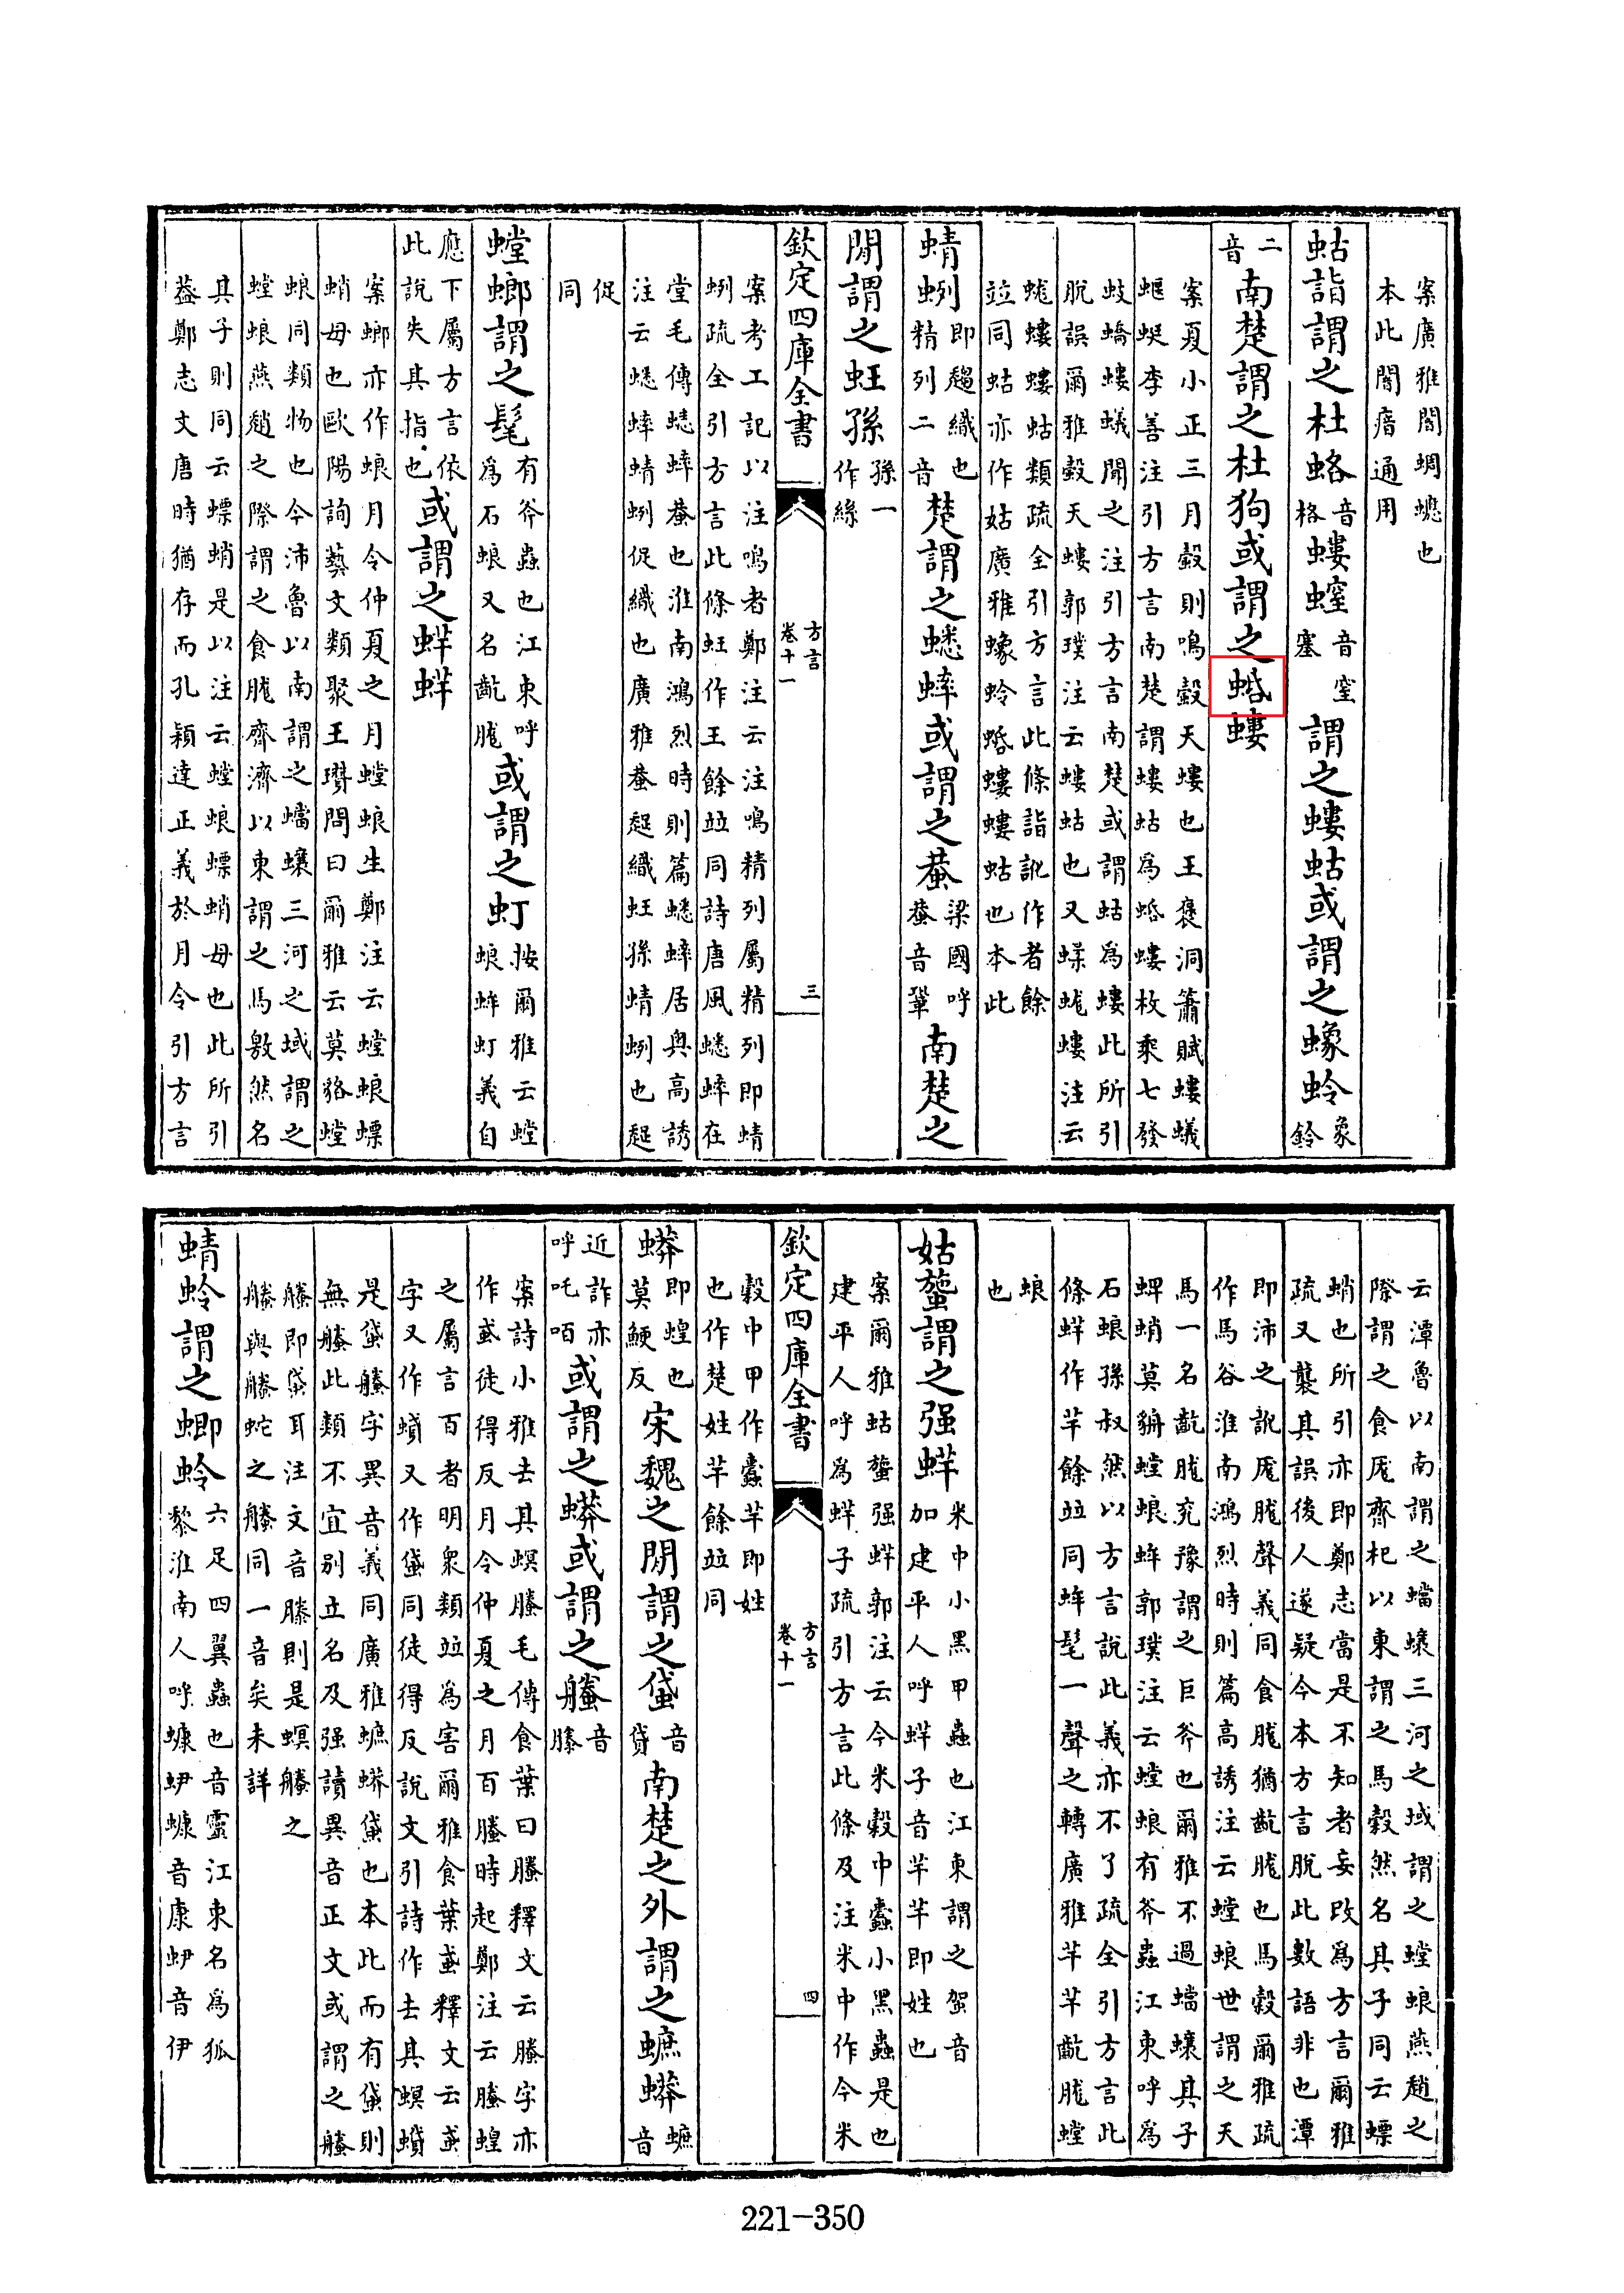 案廣雅闇蜩蟪也
本此闇瘖通用
蛄詣謂之杜蛒音格螻螲音室塞謂之螻蛄或謂之蟓蛉象鈴
二音南楚謂之杜狗或謂之蛞螻
案夏小正三月瑴則鳴瑴天螻也王褒洞簫賦螻蟻
蝘蜓李善注引方言南楚謂螻蛄為蛞螻枚乘七發
蚑蟜螻蟻聞之注引方言南楚或謂蛄為螻此所引
脫誤爾雅瑴天螻郭璞注云螻蛄也又蟔蛖螻注云
蛖螻螻蛄類疏全引方言此條詣訛作者餘
竝同蛄亦作姑廣雅蟓蛉蛞螻螻蛄也本此
蜻蛚即趨織也精列二音楚謂之蟋蟀或謂之蛬梁國呼蛬音鞏南楚之
閒謂之蚟孫孫一作絲
欽定四庫全書
方言
卷十一
三
案考工記以注鳴者鄭注云注鳴精列屬精列即蜻
蛚疏全引方言此條蚟作王餘竝同詩唐風蟋蟀在
堂毛傳蟋蟀蛬也淮南鴻烈時則篇蟋蟀居奥高誘
注云蟋蟀蜻蛚促織也廣雅蛬趗織蚟孫蜻蛚也趗
促
同
螳螂謂之髦有斧蟲也江東呼為石蜋又名齕肬或謂之虰按爾雅云螳蜋蛑虰義自
應下屬方言依此說失其指也或謂之蛘蛘
案螂亦作蜋月令仲夏之月螳蜋生鄭注云螳蜋螵
蛸母也歐陽詢藝文類聚王瓚問曰爾雅云莫貉螳
蜋同類物也今沛魯以南謂之蟷蠰三河之域謂之
螳蜋燕趙之際謂之食肬齊濟以東謂之馬敫然名
其子則同云螵蛸是以注云螳蜋螵蛸母也此所引
蓋鄭志文唐時猶存而孔穎達正義於月令引方言
云潭魯以南謂之蟷蠰三河之域謂之螳蜋燕趙之
際謂之食厖齊杞以東謂之馬穀然名其子同云螵
蛸也所引亦即鄭志當是不知者妄改為方言爾雅
疏又襲其誤後人遂疑今本方言脫此數語非也潭
即沛之訛厖肬聲義同食肬猶齕肬也馬穀爾雅疏
作馬谷淮南鴻烈時則篇高誘注云螳蜋世謂之天
馬一名齕肬兖豫謂之巨斧也爾雅不過蟷蠰其子
蜱蛸莫貈螳蜋蛑郭璞注云螳蜋有斧蟲江東呼為
石蜋孫叔然以方言說此義亦不了疏全引方言此
條蛘作芉餘竝同蛑髦一聲之轉廣雅芉芉齕肬螳
蜋
也
姑䗐謂之强蛘米中小黑甲蟲也江東謂之䖪音加建平人呼蛘子音芉芉即姓也
案爾雅蛄䗐强蛘郭注云今米穀中蠹小黑蟲是也
建平人呼為蛘子疏引方言此條及注米中作今米
穀中甲作蠹芉即姓
也作楚姓芉餘竝同
欽定四庫全書
方言
卷十一
四
蟒即蝗也莫鯁反宋魏之閒謂之䘃音貸南楚之外謂之蟅蟒蟅音
近詐亦呼吒咟或謂之蟒或謂之螣音滕
案詩小雅去其螟螣毛傳食葉曰螣釋文云螣字亦
作蟘徒得反月令仲夏之月百螣時起鄭注云螣蝗
之屬言百者明衆類竝為害爾雅食葉蟘釋文云蟘
字又作蟦又作䘃同徒得反說文引詩作去其螟蟦
是䘃螣字異音義同廣雅蟅蟒䘃也本此而有䘃則
無螣此類不宜别立名及强讀異音正文或謂之螣
螣即䘃耳注文音滕則是螟螣之
螣與螣蛇之螣同一音矣未詳
蜻蛉謂之蝍蛉六足四翼蟲也音靈江東名為狐黎淮南人呼蠊蛜蠊音康蛜音伊
221-350